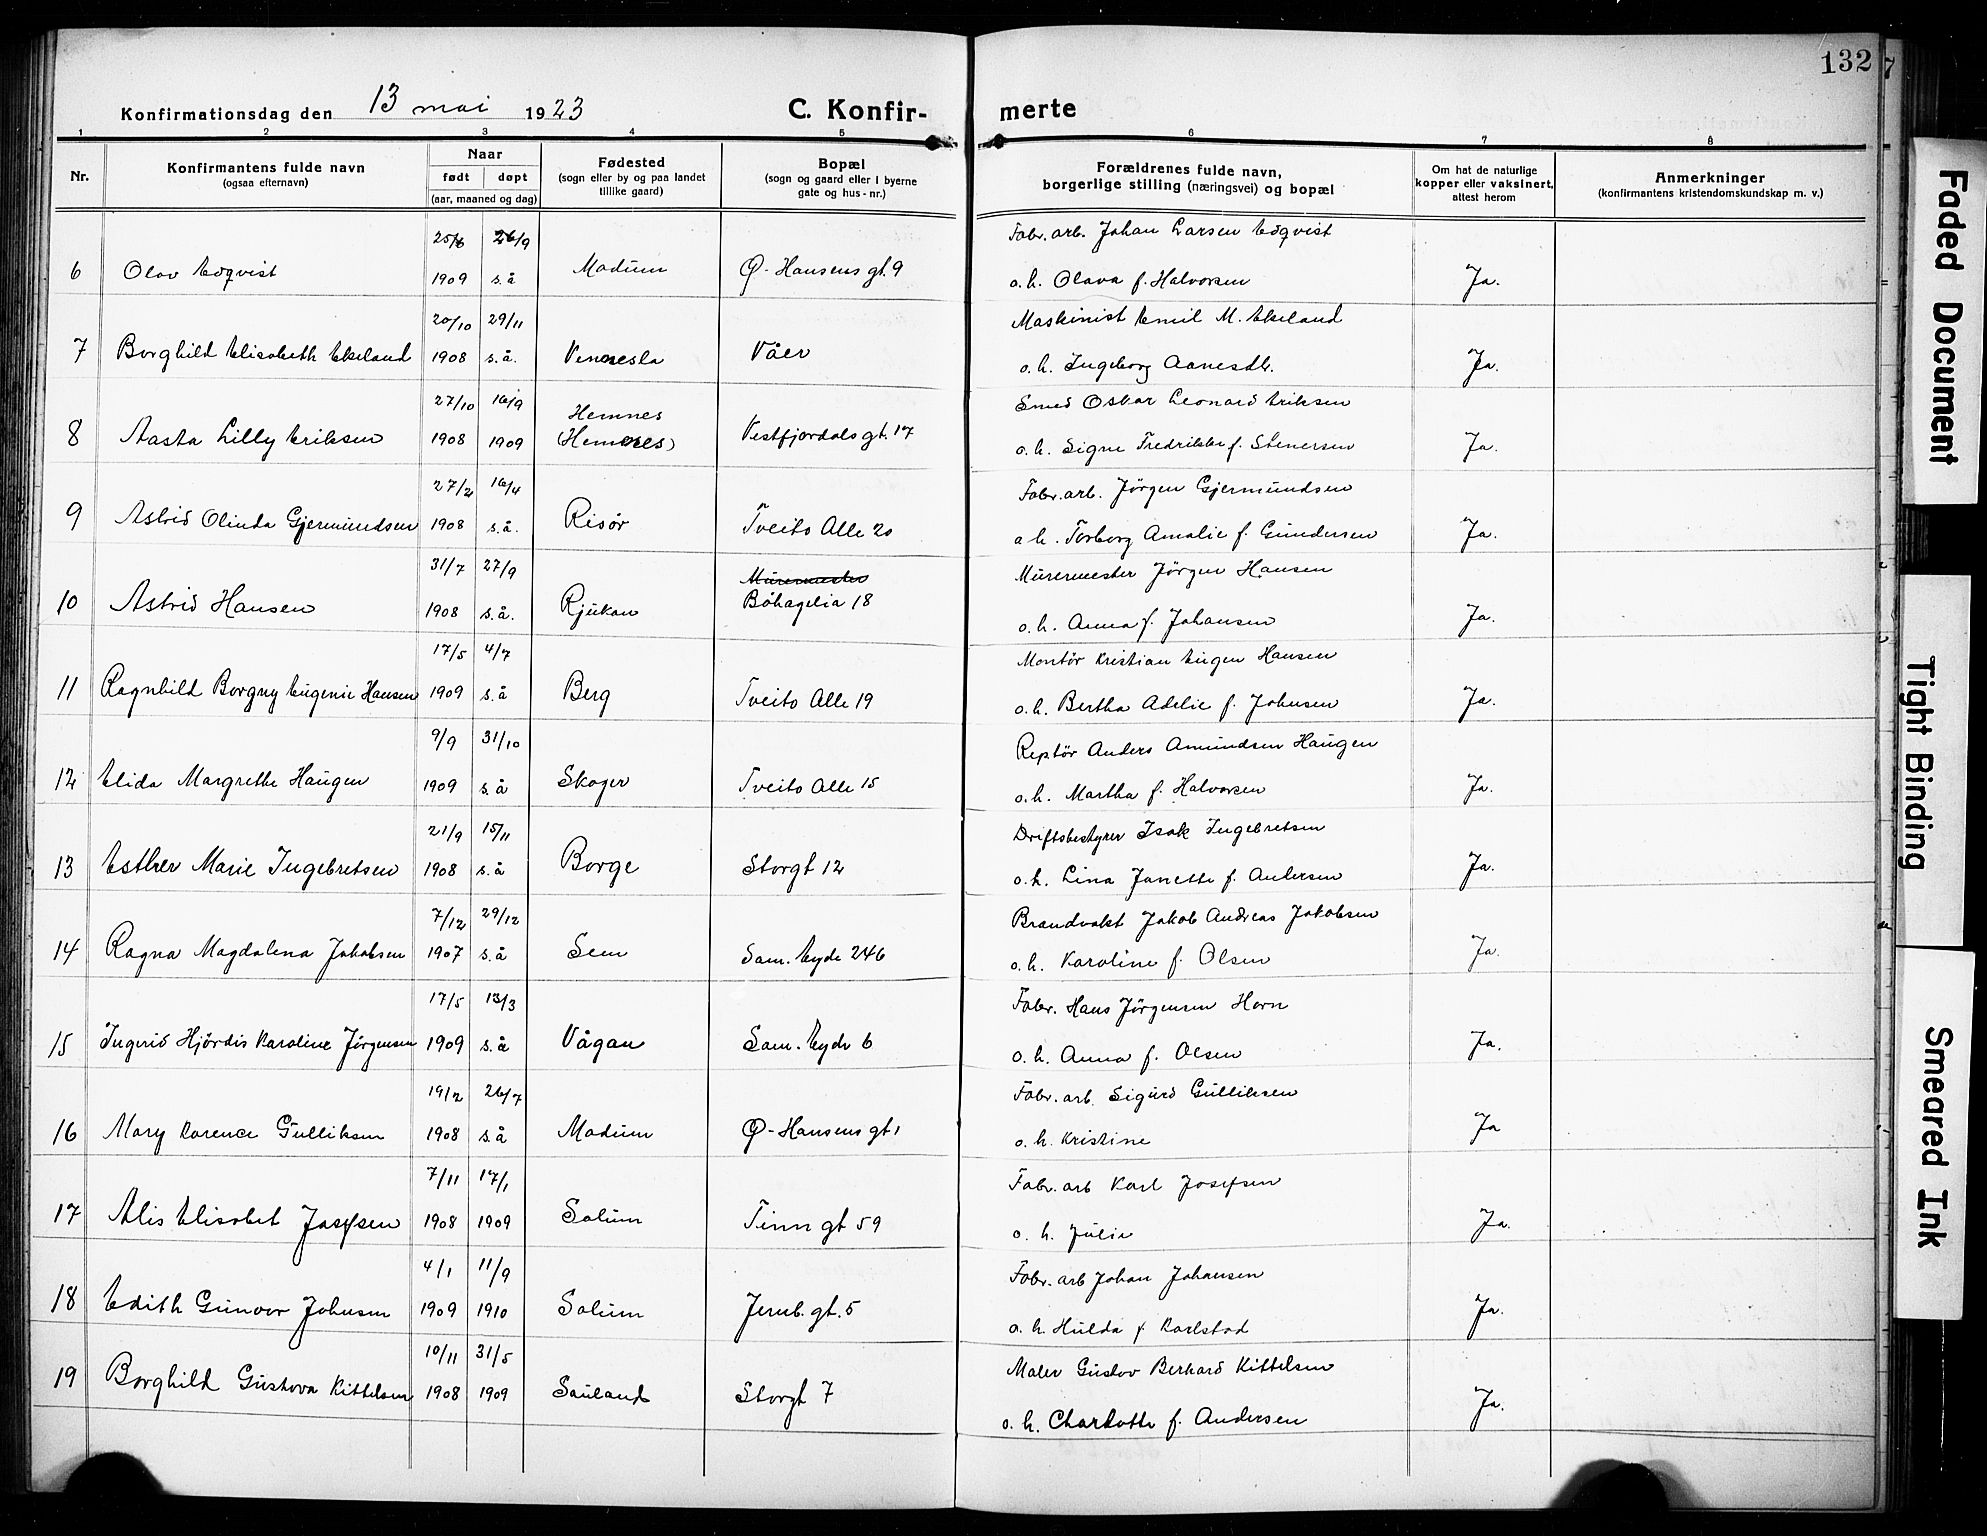 132
Konfirmationsdag den 13 mai 1923
C. Konfir-
merte
1 2 3 4 5 6 7 8
Nr.
Konfirmantens fulde navn
(ogsaa efternavn)
Naar
født døpt
(aar, maaned og dag)
Fødested
(sogn eller by og paa landet
tillike gaard)
Bopæl
(sogn og gaard eller i byerne
gate og hus-nr.)
Forældrenes fulde navn,
borgerlige stilling (næringsvei) og bopæl
Om hat de naturlige
kopper eller vaksinert,
attest herom
Anmerkninger
(konfirmantens kristendomskundskap m. v.)
25/6 26/9 Fabr. arb. Johan Larsen Edqvist
6 Olav Edqvist 1909 s.å Modum Ø-Hansens gt. 9 o. h. Olava f. Halvorsen Ja.
20/10 29/11 Maskinist Emil M. Ekeland
7 Borghild Elisabeth Ekeland 1908 s.å. Vennesla Våer o. h. Ingeborg Aanesdtr. Ja.
27/10 16/9 Hemnes Smed Oskar Leonard Eriksen
8 Aasta Lilly Eriksen 1908 1909 (Hemnes) Vestfjordals gt. 17 o. h. Signe Fredrikke f. Stenersen Ja.
27/2 16/4 Fabr. arb. Jörgen Gjermundsen
9 Astrid Olinda Gjermundsen 1908 s.å. Risör Tveito Alle 20 o h. Torborg Amalie f. Gundersen Ja.
31/7 27/9 Murermester Murermester Jörgen Hansen
10 Astrid Hansen 1908 s.å. Rjukan Böhagelia 18 o. h. Anna f. Johansen Ja.
17/5 4/7 Montör Kristian Eugen Hansen
11 Ragnhild Borgny Eugenie Hansen 1909 s.å Berg Tveito Alle 19 o. h. Bertha Adelie f. Johnsen Ja.
9/9 31/10 Reptör Anders Amundsen Haugen
12 Elida Margrethe Haugen 1909 s.å Skoger Tveito Alle 15 o. h. Martha f. Halvorsen Ja.
21/9 15/11 Driftsbestyrer Isak Ingebretsen
13 Esther Marie Ingebretsen 1908 s.å Borge Storgt 12 o. h. Lina Janette f. Andersen Ja.
7/12 29/12 Brandvakt Jakob Andreas Jakobsen
14 Ragna Magdalena Jakobsen 1907 s.å Sem Sam. Eyde 246 o. h. Karoline f. Olsen Ja.
17/5 13/3 Fabr. Hans Jörgensen Horn
15 Ingrid Hjördis Karoline Jörgensen 1909 s.å Vågan Sam. Eyde 6 o. h. Anna f. Olsen Ja.
19/2 26/7 Fabr. arb. Sigurd Gulliksen
16 Mary Karence Gulliksen 1908 s.å Modum Ø-Hansens gt 1 o. h. Kristine Ja
7/11 17/1 Fabr. arb Karl Josefsen
17 Alis Elisabet Josefsen 1908 1909 Solum Tinn gt 59 o. h. Julie Ja.
4/1 11/9 Fabr. arb Johan Johansen
18 Edith Gunvor Johnsen 1909 1910 Solum Jernb. gt. 5 o. h. Hulda f Karlstad Ja.
10/11 31/5 Maler Gustav Berhard Kittelsen
19 Borghild Gustava Kittelsen 1908 1909 Sauland Storgt 7 o. h. Charlotte f. Andersen Ja.
Faded Document
Tight Binding
Smeared Ink